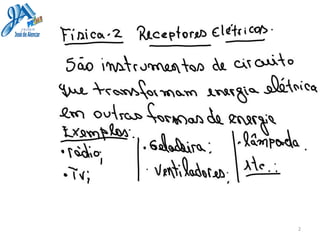 José de Alencar
Física-2 Receptores Elétricos.
São instrumentos de circuito
que transformam energia elétrica
em outras formas de energia
Exemplos:
• rádio; • Geladeira; • lâmpada.
• Tv; • Ventiladores; etc.:
2